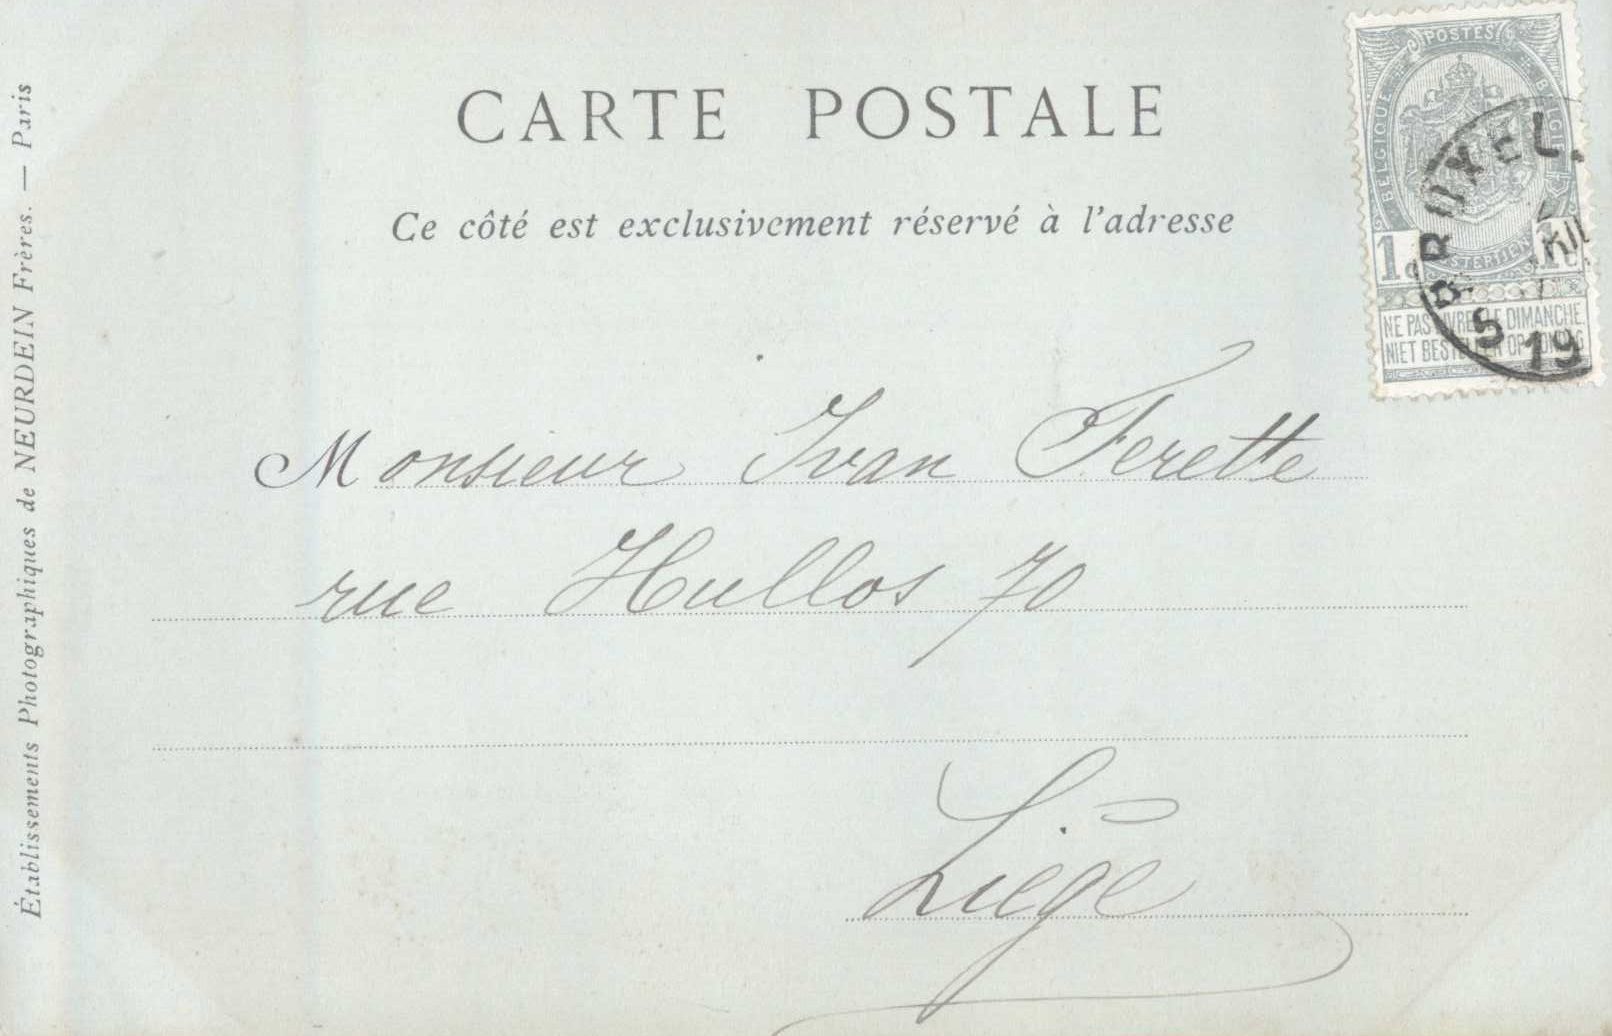 CARTE POSTALE
Ce côté est exclusivement réservé à l'adresse
POSTES
BELGIQUE BELGIË
1c 1c
NE PAS LIVRER LE DIMANCHE
NIET BESTELLEN OP ZONDAG
BRUXEL
XII
5 19
Monsieur Ivan Ferette
rue Hullos 70
Liège
Établissements Photographiques de NEURDEIN Frères. — Paris